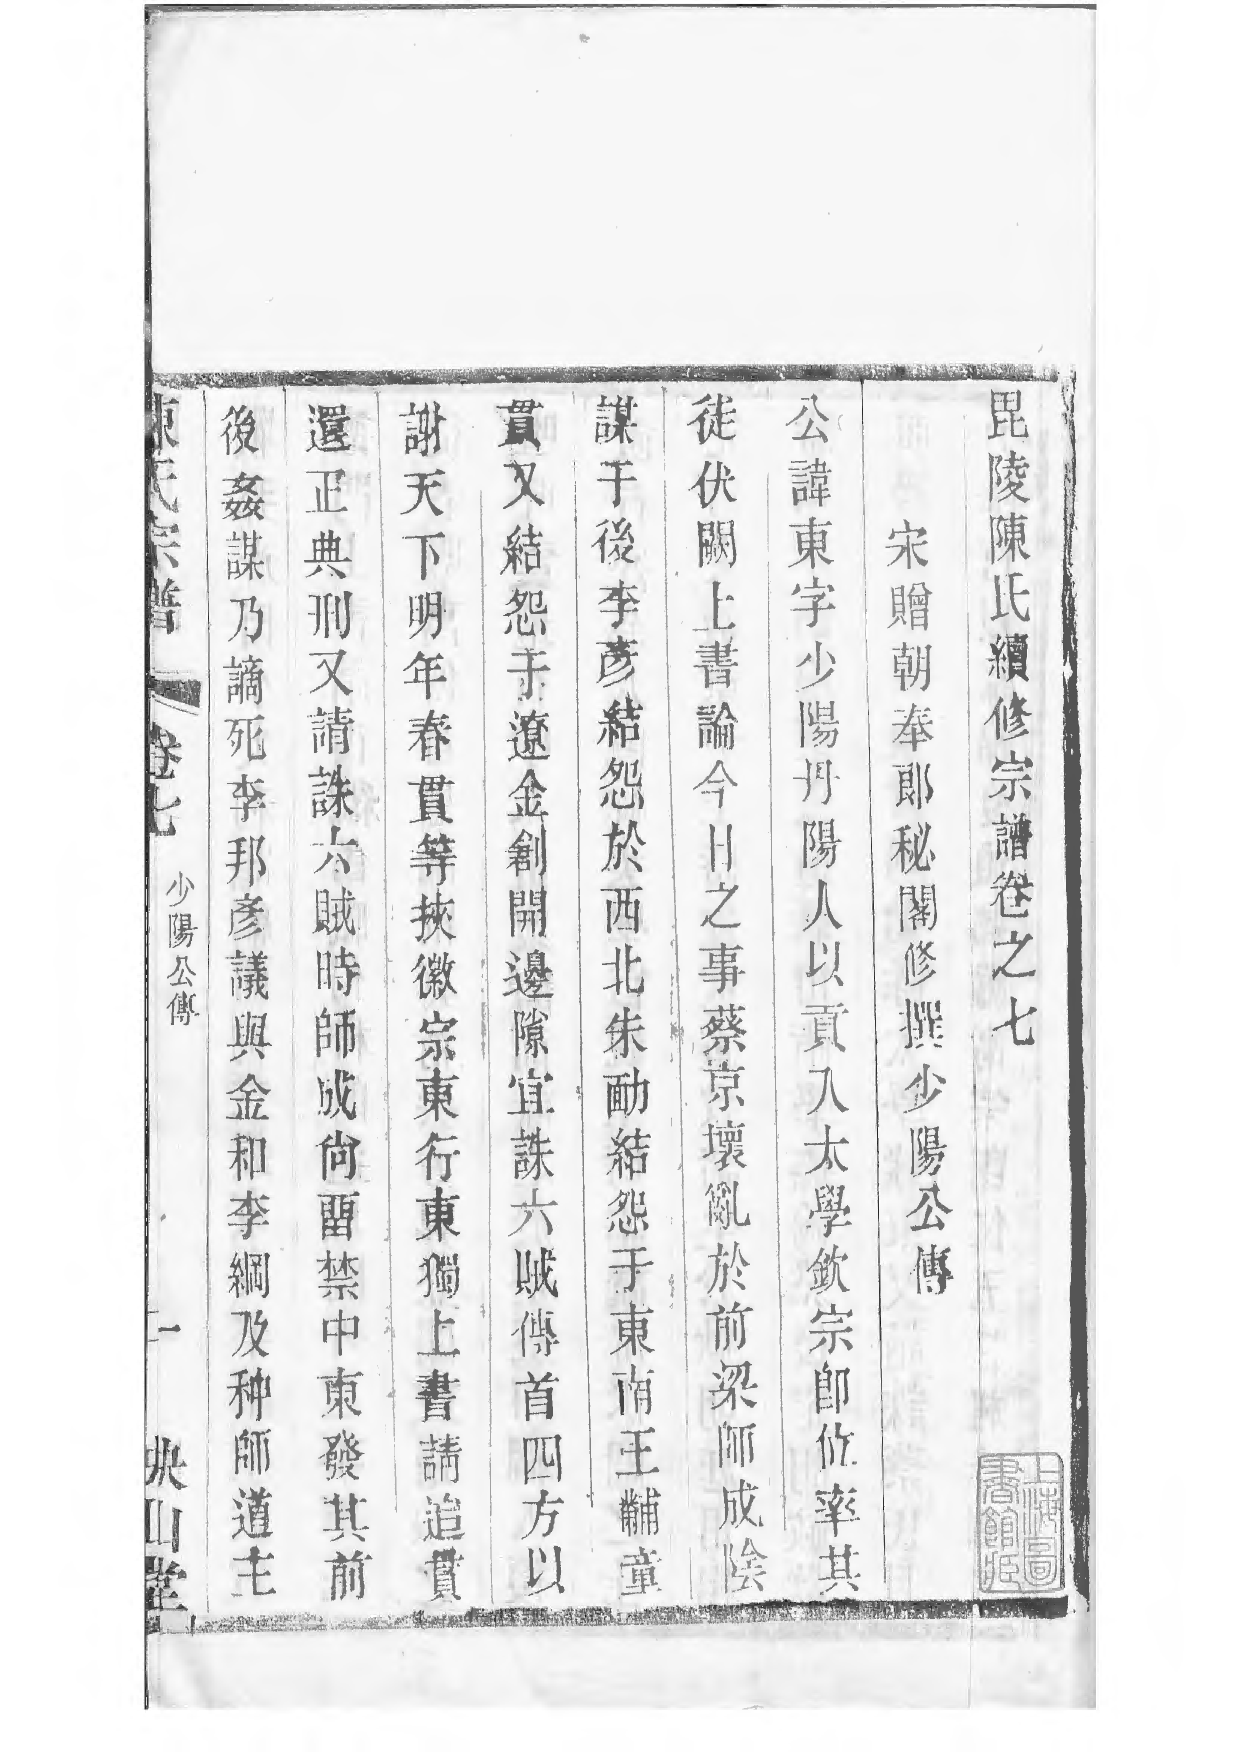 毘陵陳氏續修宗譜卷之七
宋贈朝奉郎秘閣修撰少陽公傳
公諱東字少陽丹陽人以貢入太學欽宗卽位率其
徒伏闕上書論今日之事蔡京壞亂於前梁師成陰
謀于後李彥結怨於西北朱勔結怨于東南王黼童
貫又結怨于遼金創開邊隙宜誅六賊傳首四方以
謝天下明年春貫等挾徽宗東行東獨上書請追貫
還正典刑又請誅六賊時師成尙畱禁中東發其前
後姦謀乃謫死李邦彥議與金和李綱及种師道主
陳氏宗譜
卷七
少陽公傳
一
映山堂
上海圖書館藏